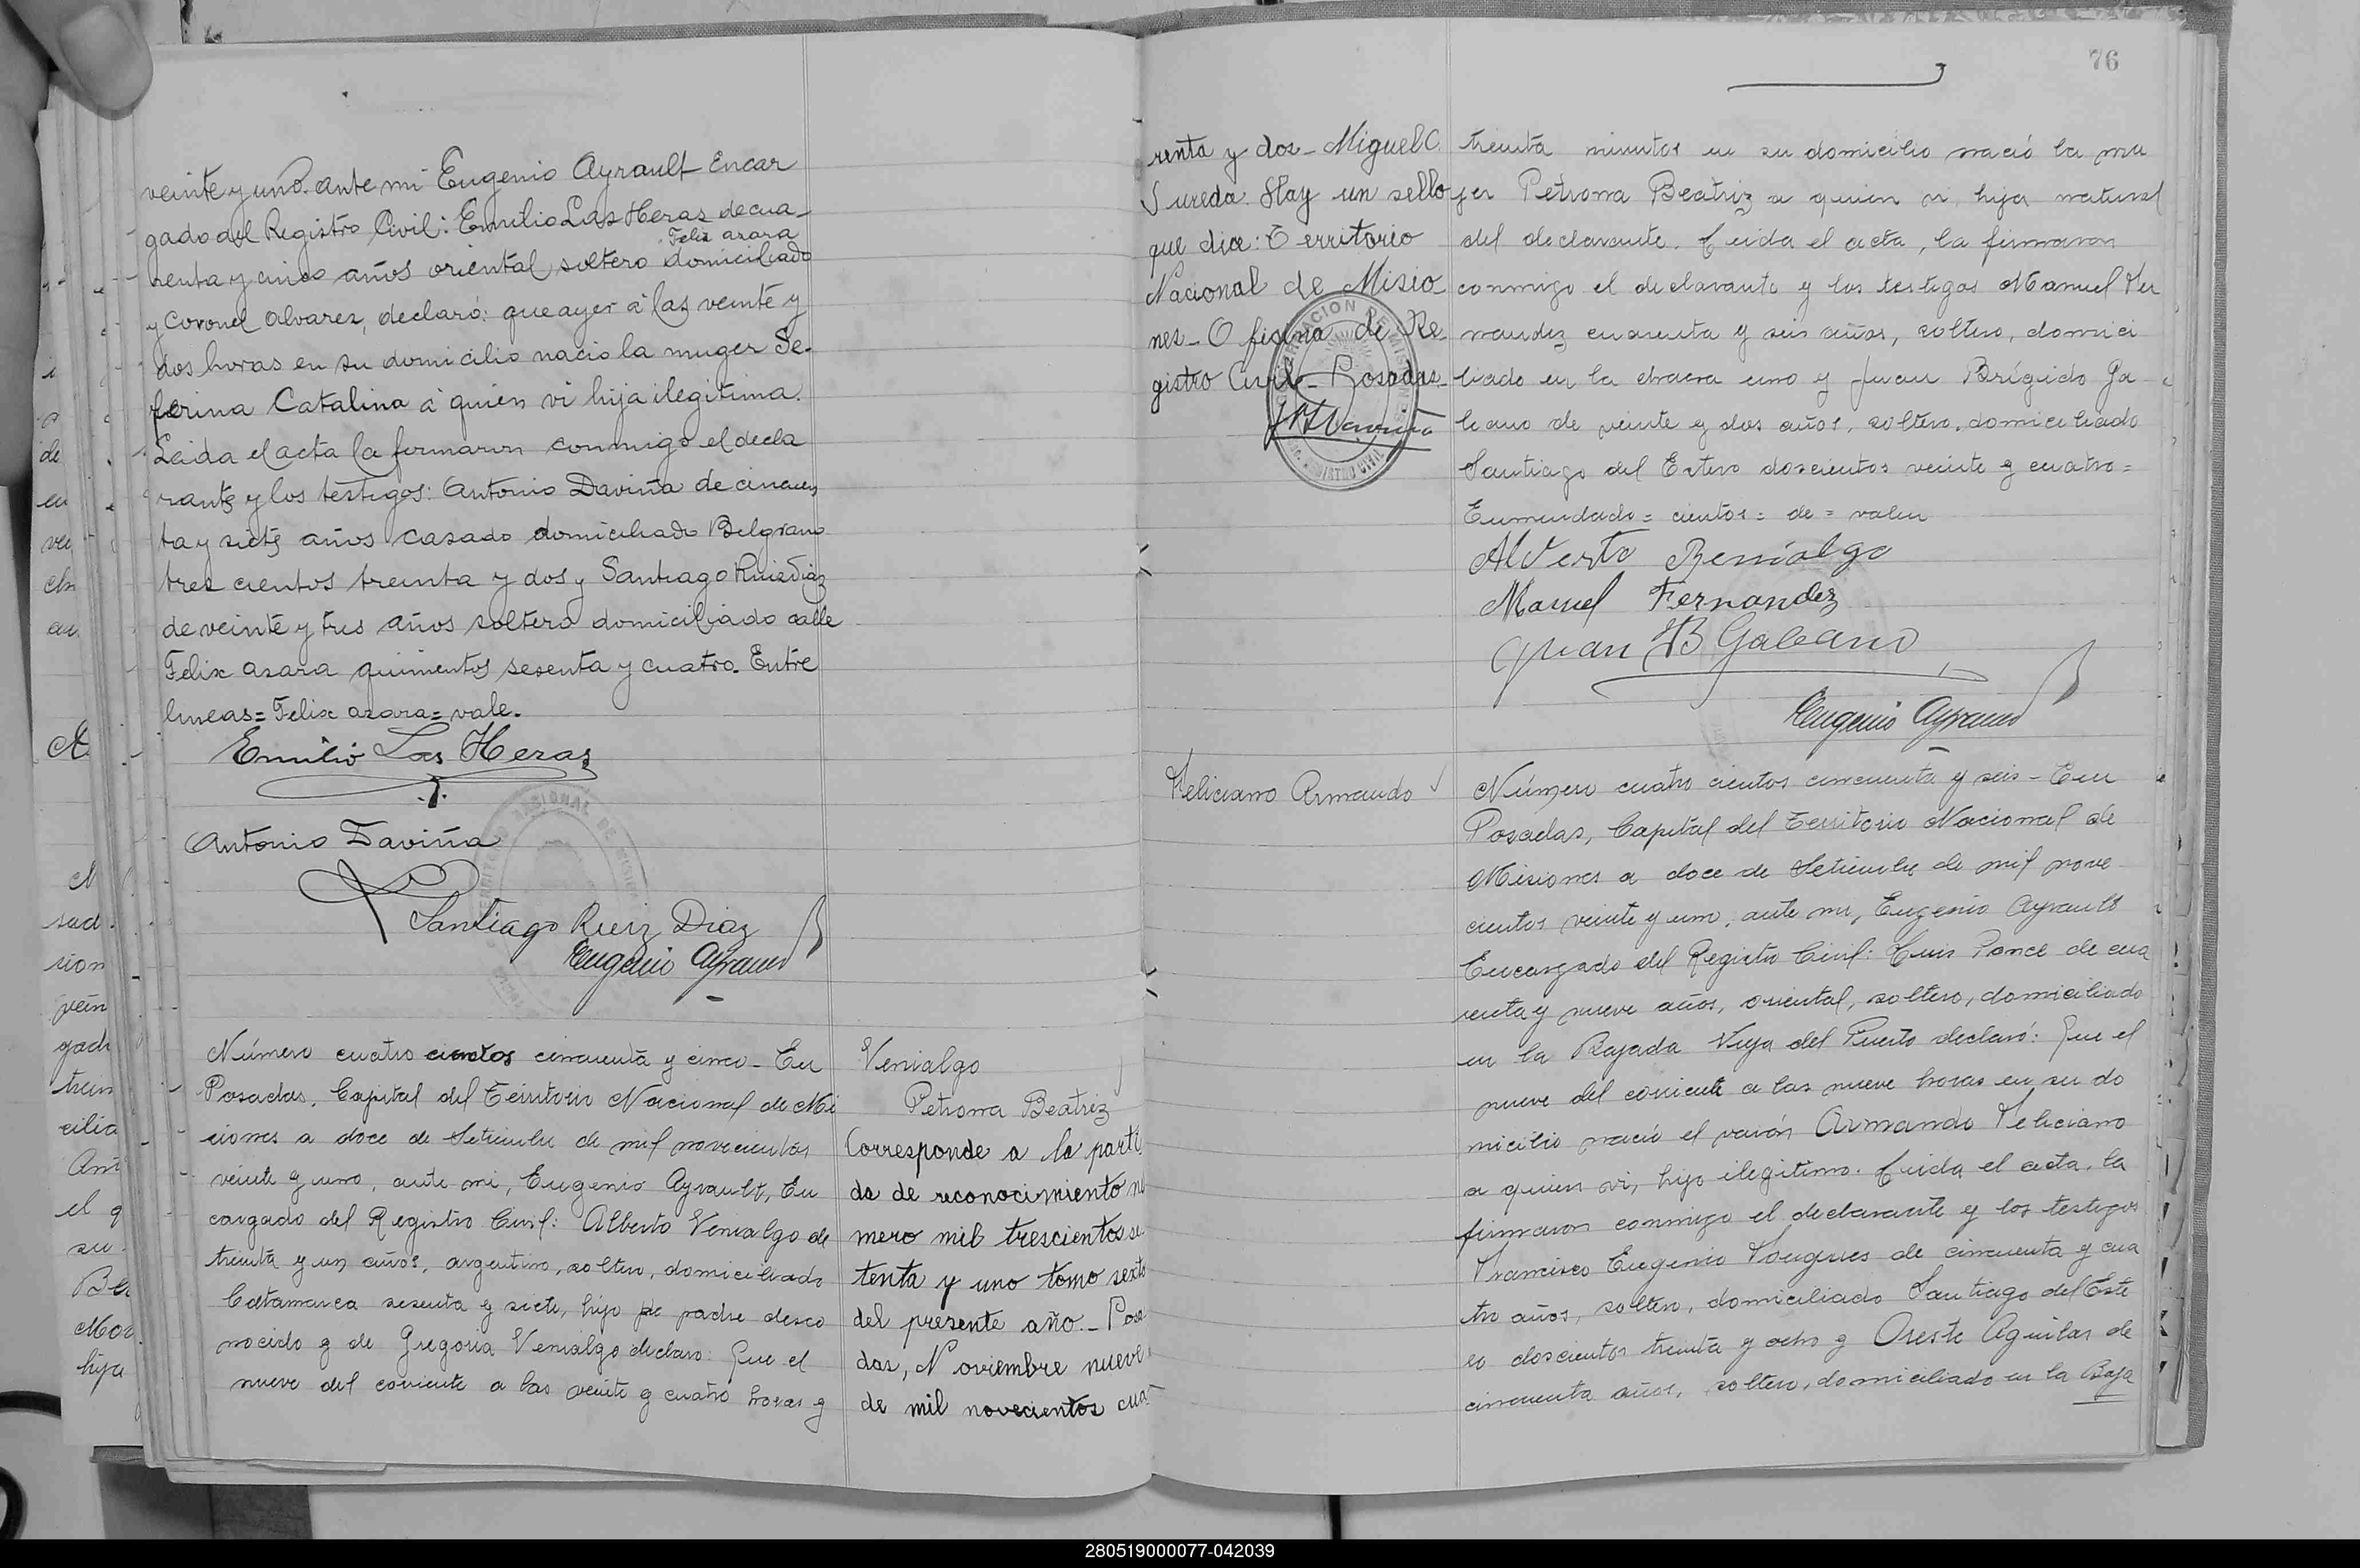 veinte y uno. ante mi Eugenio Ayrault Encar
gado del Registro Civil: Emilio Las Heras de cua-
renta y cinco años oriental soltero domiciliado
Felix azara
y Coronel alvarez, declaró: que ayer a las veinte y
dos horas en su domicilio nacio la muger Se-
ferina Catalina a quien vi hija ilegitima.
Leida el acta la firmaron conmigo el decla
rante y los testigos: Antonio Daviña de cincuen
ta y siete años casado domiciliado Belgrano
tres cientos treinta y dos y Santiago Ruiz Diaz
de veinte y tres años soltero domiciliado calle
Felix azara quinientos sesenta y cuatro. Entre
lineas = Felix azara = vale.
Emilio Las Heras
Antonio Daviña
Santiago Ruiz Diaz
Eugenio Ayrault
Número cuatro cientos cincuenta y cinco - En
Posadas, Capital del Territorio Nacional de Mi
siones a doce de Setiembre de mil novecientos
veinte y uno, ante mi, Eugenio Ayrault, En
cargado del Registro Civil: Alberto Venialgo de
treinta y un años, argentino, soltero, domiciliado
Catamarca sesenta y siete, hijo de padre desco
nocido y de Gregoria Venialgo declaro: Que el
nueve del corriente a las veinte y cuatro horas y
Venialgo
Petrona Beatriz
Corresponde a la parti
da de reconocimiento nu
mero mil trescientos se
tenta y uno tomo sexto
del presente año. - Posa
das, Noviembre nueve
de mil novecientos cua
76
renta y dos - Miguel C.
Sureda. Hay un sello
que dice: Territorio
Nacional de Misio
nes - Oficina de Re
gistro Civil - Posadas -
treinta minutos en su domicilio nació la mu
jer Petrona Beatriz a quien vi, hija natural
del declarante. Leida el acta, la firmaron
conmigo el declarante y los testigos Manuel Fer
nandez cuarenta y seis años, soltero, domici
liado en la chacra uno y Juan Brígido Ga
leano de veinte y dos años, soltero, domiciliado
Santiago del Estero doscientos veinte y cuatro =
Enmendado = cientos = de = valen
Alverto Benialgo
Manuel Fernandez
Juan B Galeano
Eugenio Ayrault
Feliciano Armando
Número cuatro cientos cincuenta y seis - En
Posadas, Capital del Territorio Nacional de
Misiones a doce de Setiembre de mil nove
cientos veinte y uno, ante mi, Eugenio Ayrault
Encargado del Registro Civil: Luis Ponce de cua
renta y nueve años, oriental, soltero, domiciliado
en la Bajada Vieja del Puerto declaró: Que el
nueve del corriente a las nueve horas en su do
micilio nació el varón Armando Feliciano
a quien vi, hijo ilegitimo. Leida el acta, la
firmaron conmigo el declarante y los testigos
Francisco Eugenio de cincuenta y cua
tro años, soltero, domiciliado Santiago del Este
ro doscientos treinta y ocho y Oreste Aguilar de
cincuenta años, soltero, domiciliado en la Baja
280519000077-042039